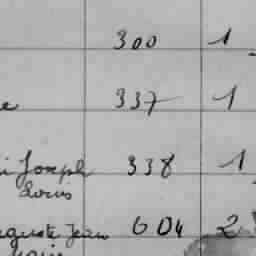 300 1
e 337 1
i Joseph 338 1
Louis
guste Jean 604 2